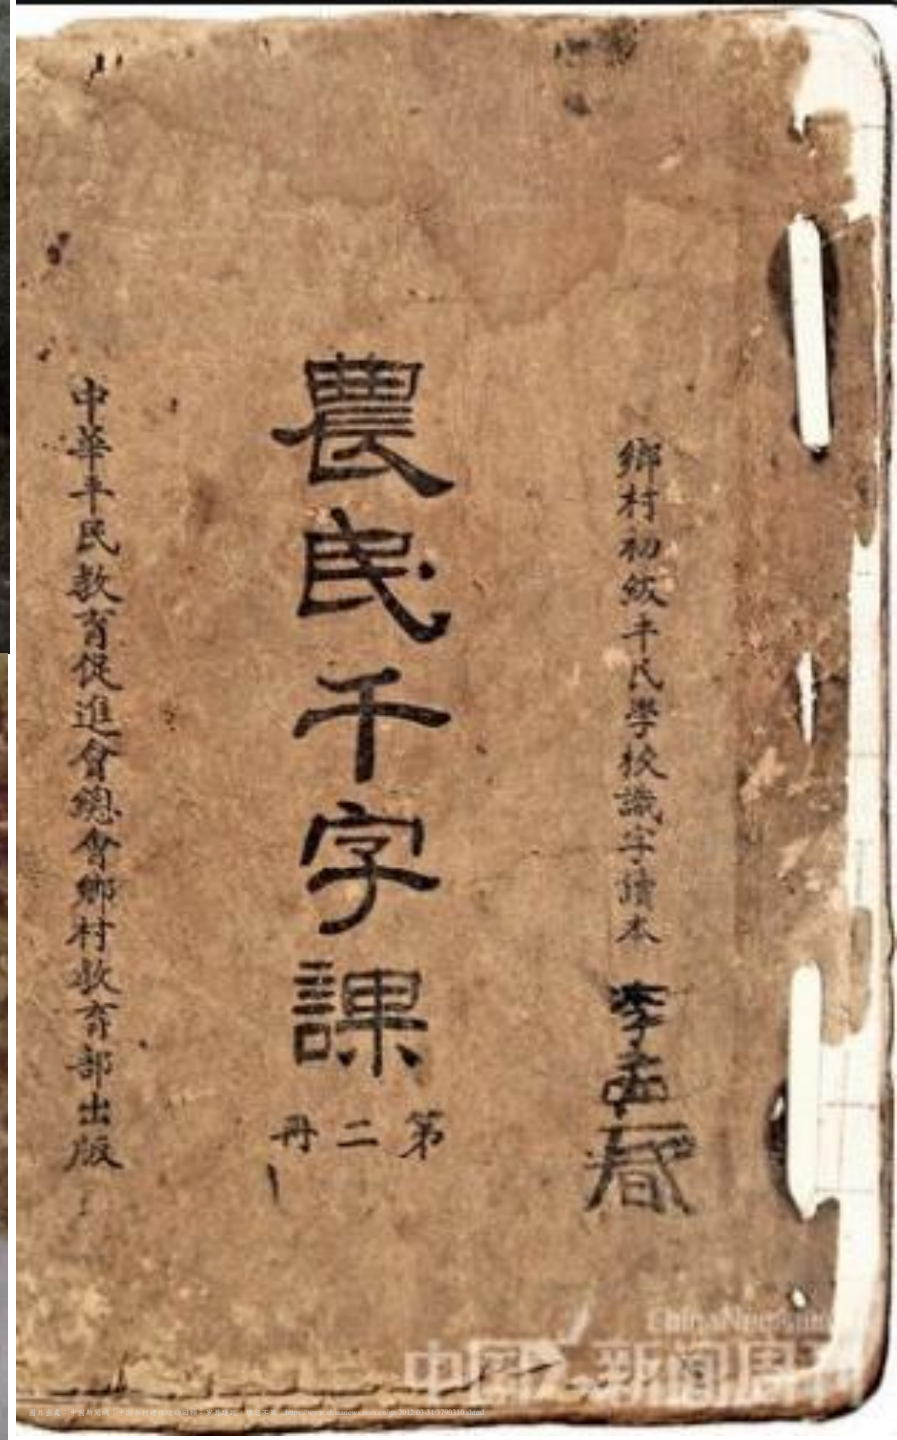 鄉村初級平民學校識字讀本
李孟春
農民千字課
第二冊
中華平民教育促進會總會鄉村教育部出版
ChinaNewsweek
中国新闻周刊